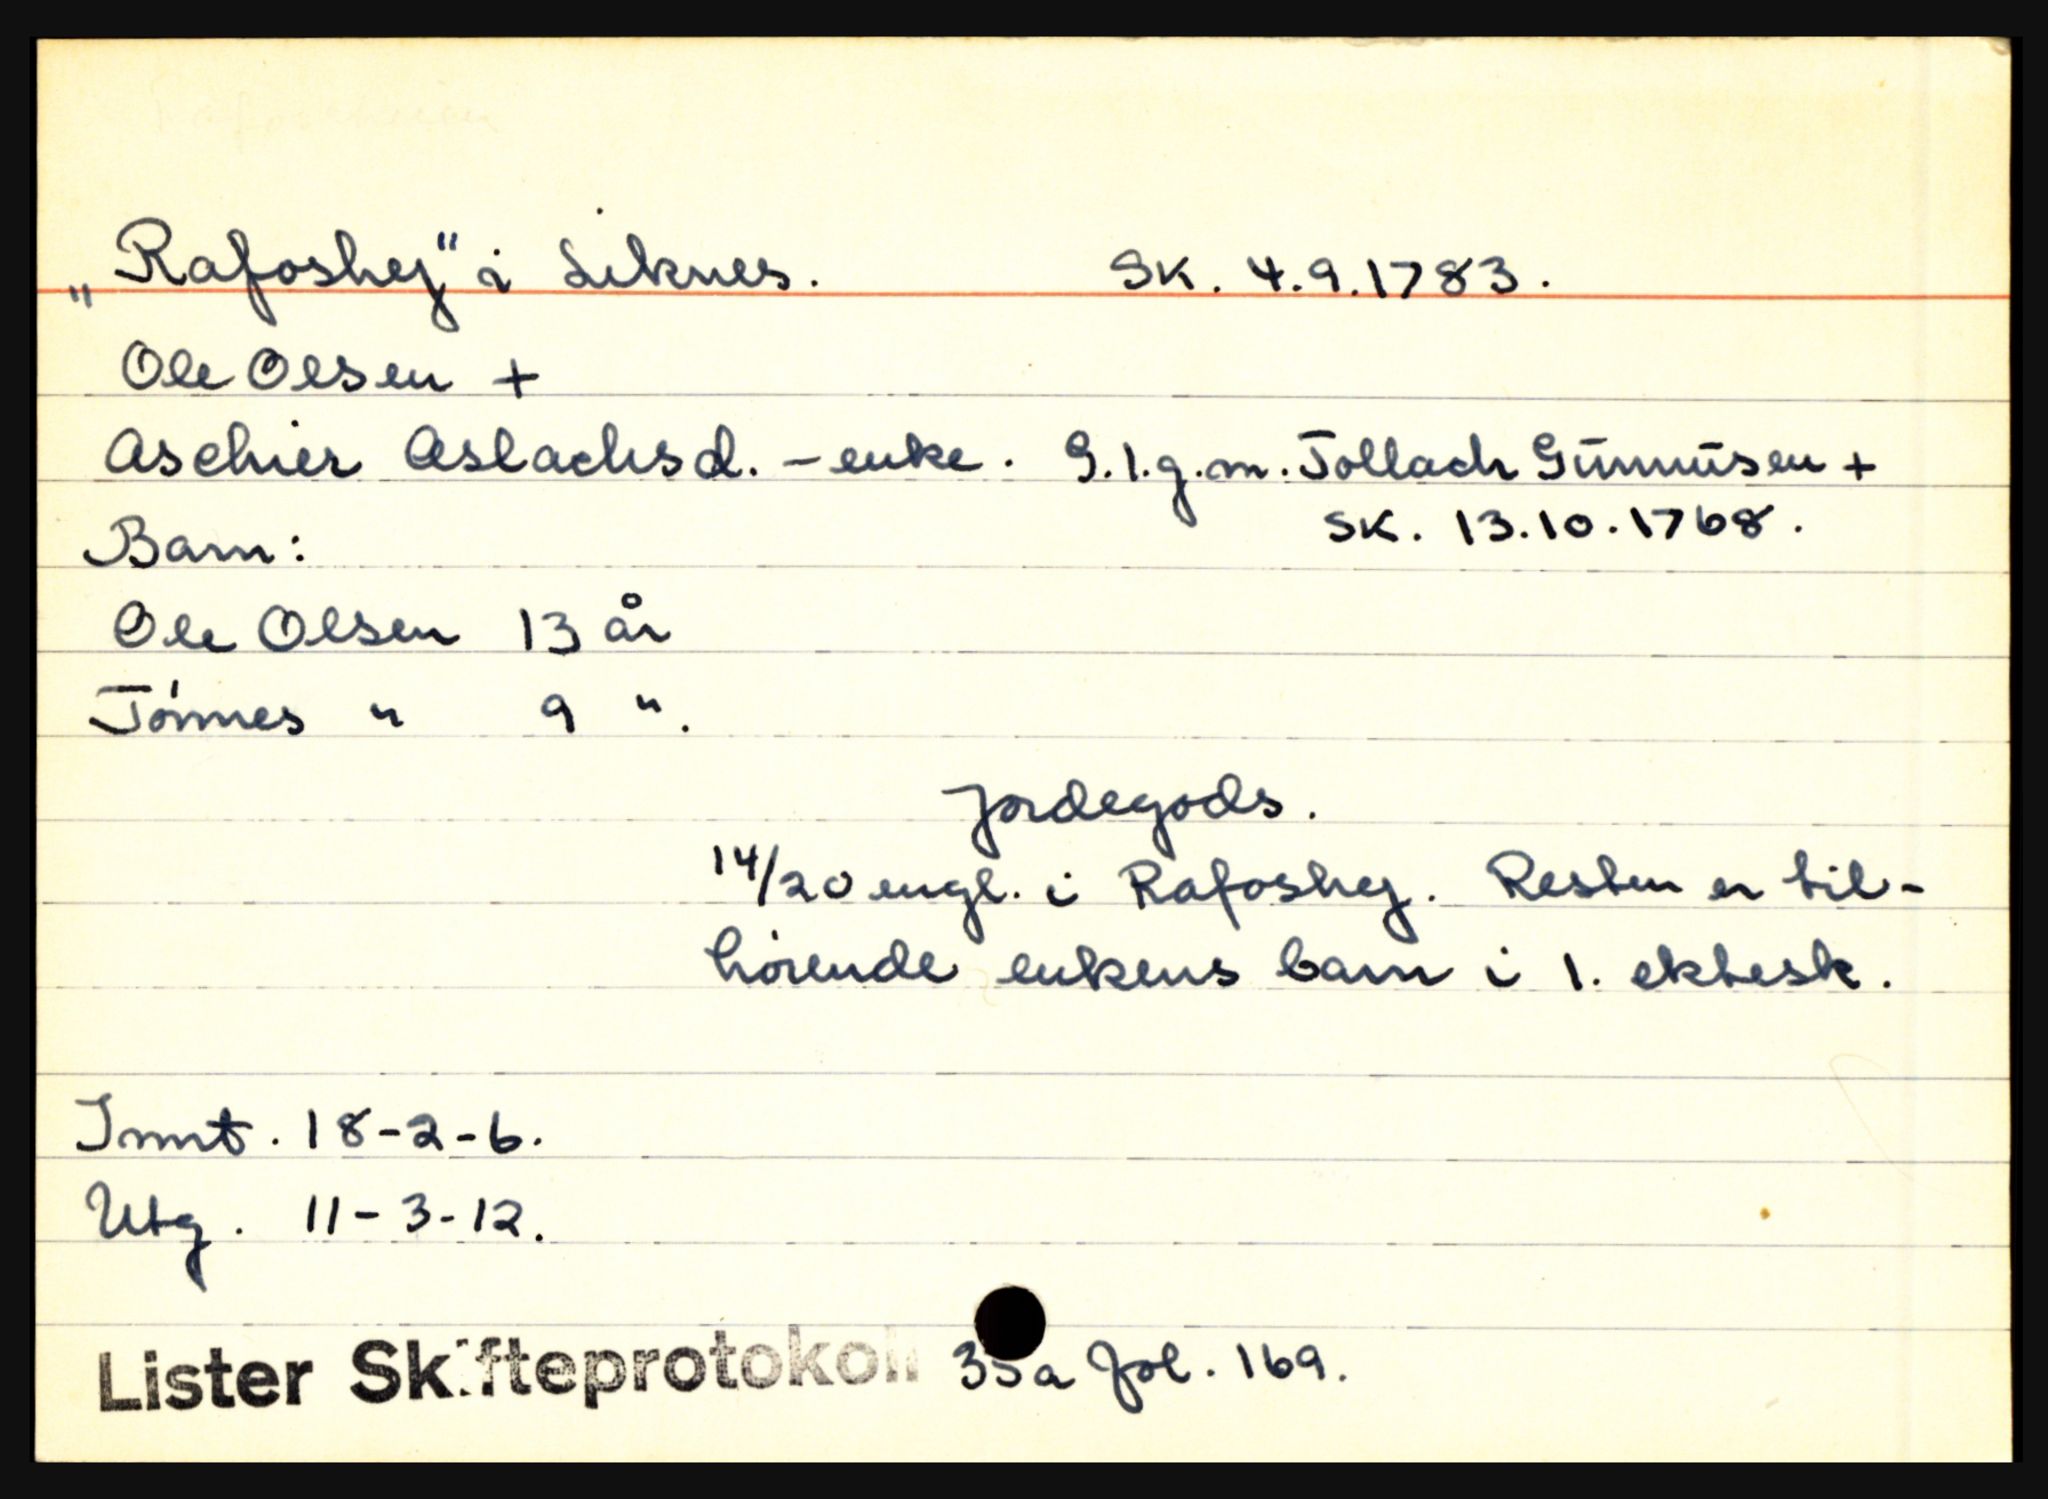 „Rafoshej" i Liknes. SK. 4.9.1783.
Ole Olsen +
Aschier Aslachsd. - enke. G.1.g.m. Tollach Gūnnūsen +
SK. 13.10.1768.
Barn:
Ole Olsen 13 år
Tónnes " 9 ".
Jordegods.
14/20 engl. i Rafoshej. Resten er til-
hørende enkens barn i 1. ektesk.
Innt. 18-2-6.
Utg. 11-3-12.
Lister Skifteprotokoll 35a fol. 169.